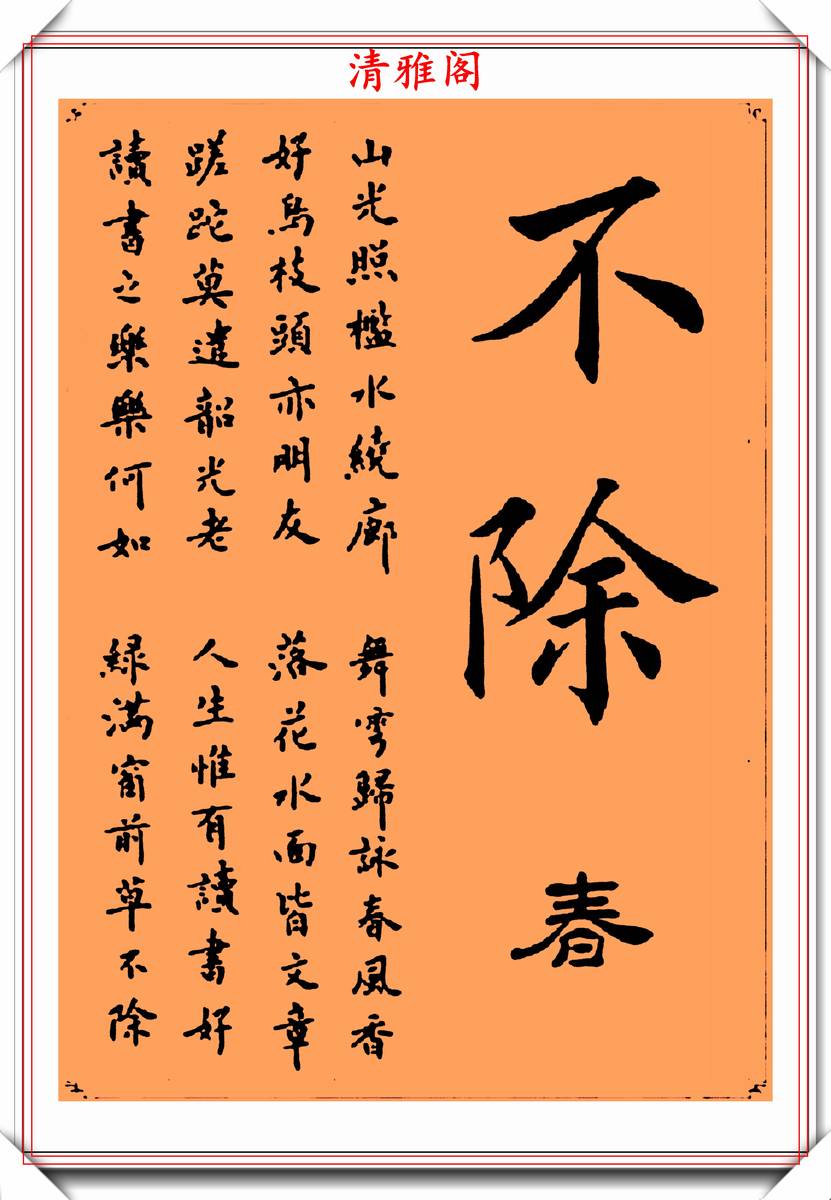 清雅阁
不除
春
山光照檻水繞廊
舞雩歸詠春風香
好鳥枝頭亦朋友
落花水面皆文章
蹉跎莫遣韶光老
人生惟有讀書好
讀書之樂樂何如
緑滿窗前草不除